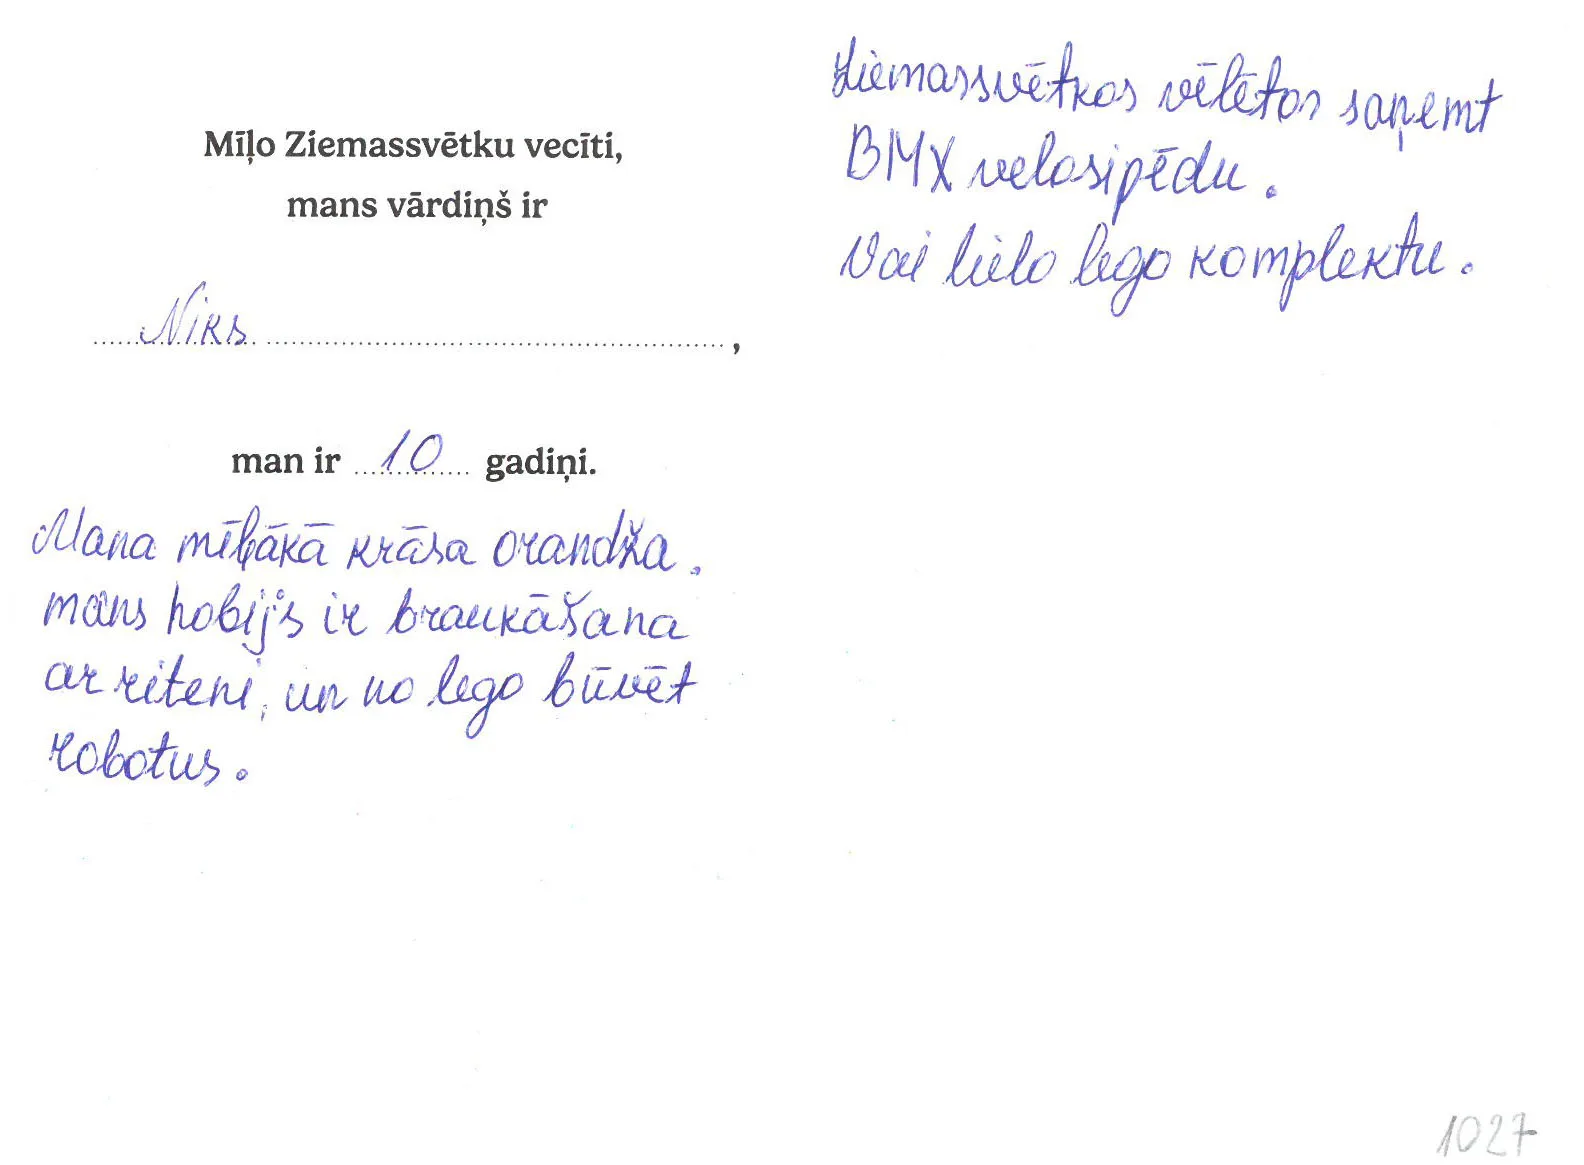 Mīļo Ziemassvētku vecīti,
mans vārdiņš ir
Niks,
man ir 10 gadiņi.
Mana mīļākā krāsa orandža.
mans hobijs ir braukāšana
ar riteni, un no lego būvēt
robotus.
Ziemassvētkos vēlētos saņemt
BMX velosipēdu.
Vai lielo lego komplektu.
1027